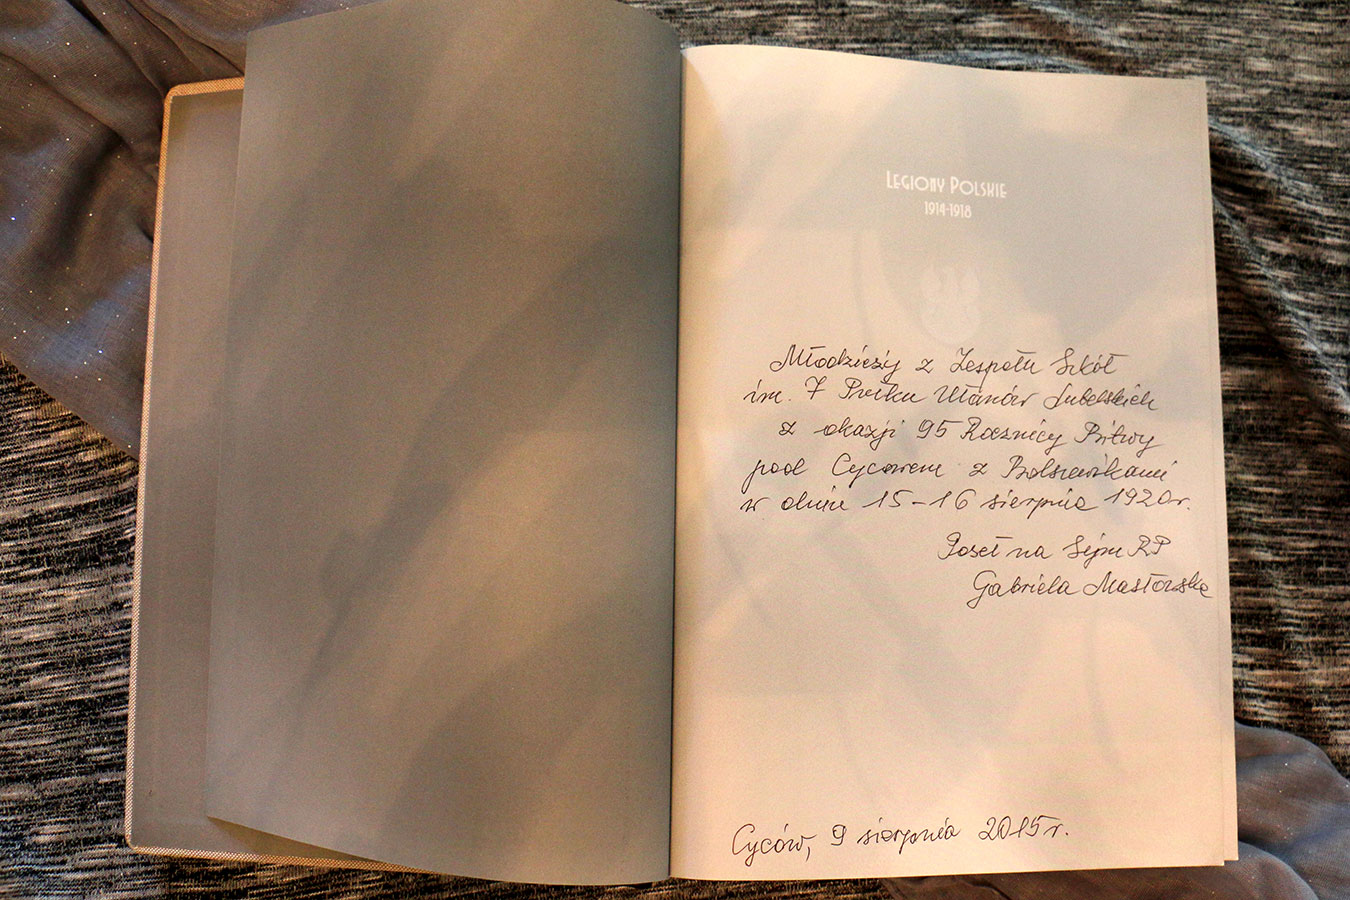 LEGIONY POLSKIE
1914-1918
Młodzieży z Zespołu Szkół
im. 7 Pułku Ułanów Lubelskich
z okazji 95 Rocznicy Bitwy
pod Cycowem z Bolszewikami
w dniu 15-16 sierpnia 1920r.
Poseł na Sejm RP
Gabriela Masłowska
Cyców, 9 sierpnia 2015r.